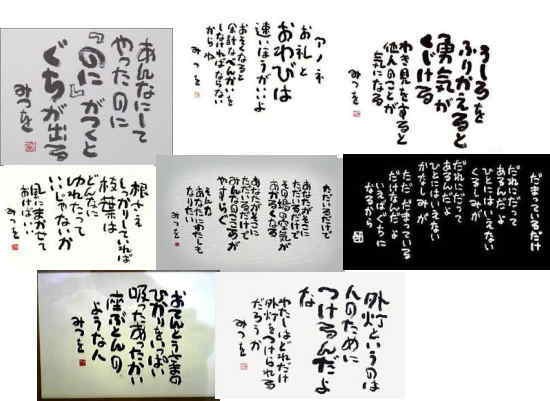 あんなにして
やったのに
『のに』がつくと
ぐちが出る
みつを
アノネ
お礼と
おわびは
速いほうがいいよ
おそくなると
余計なべんかいを
しなければならない
からね
みつを
うしろを
ふりかえると
勇気が
くじける
わき見をすると
他人のことが
気になる
みつを
根さえ
しっかりしていれば
枝葉は
どんなに
ゆれたって
いいじゃないか
風にまかせて
おけばいい
みつを
ただいるだけで
あなたがそこに
ただいるだけで
その場の空気が
あかるくなる
あなたがそこに
ただいるだけで
みんなのこころが
やすらぐ
そんな
あなたにわたしも
なりたい
みつを
だまっているだけ
だれにだって
あるんだよ
ひとにはいえない
くるしみが
だれにだって
あるんだよ
ひとにはいえない
かなしみが
ただだまっている
だけなんだよ
いえばぐちに
なるから
みつを
おてんとうさまの
ひかりをいっぱい
吸ったあったかい
座ぶとんの
ような人
みつを
外灯というのは
人のために
つけるんだよ
な
わたしはどれだけ
外灯をつけられる
だろうか
みつを